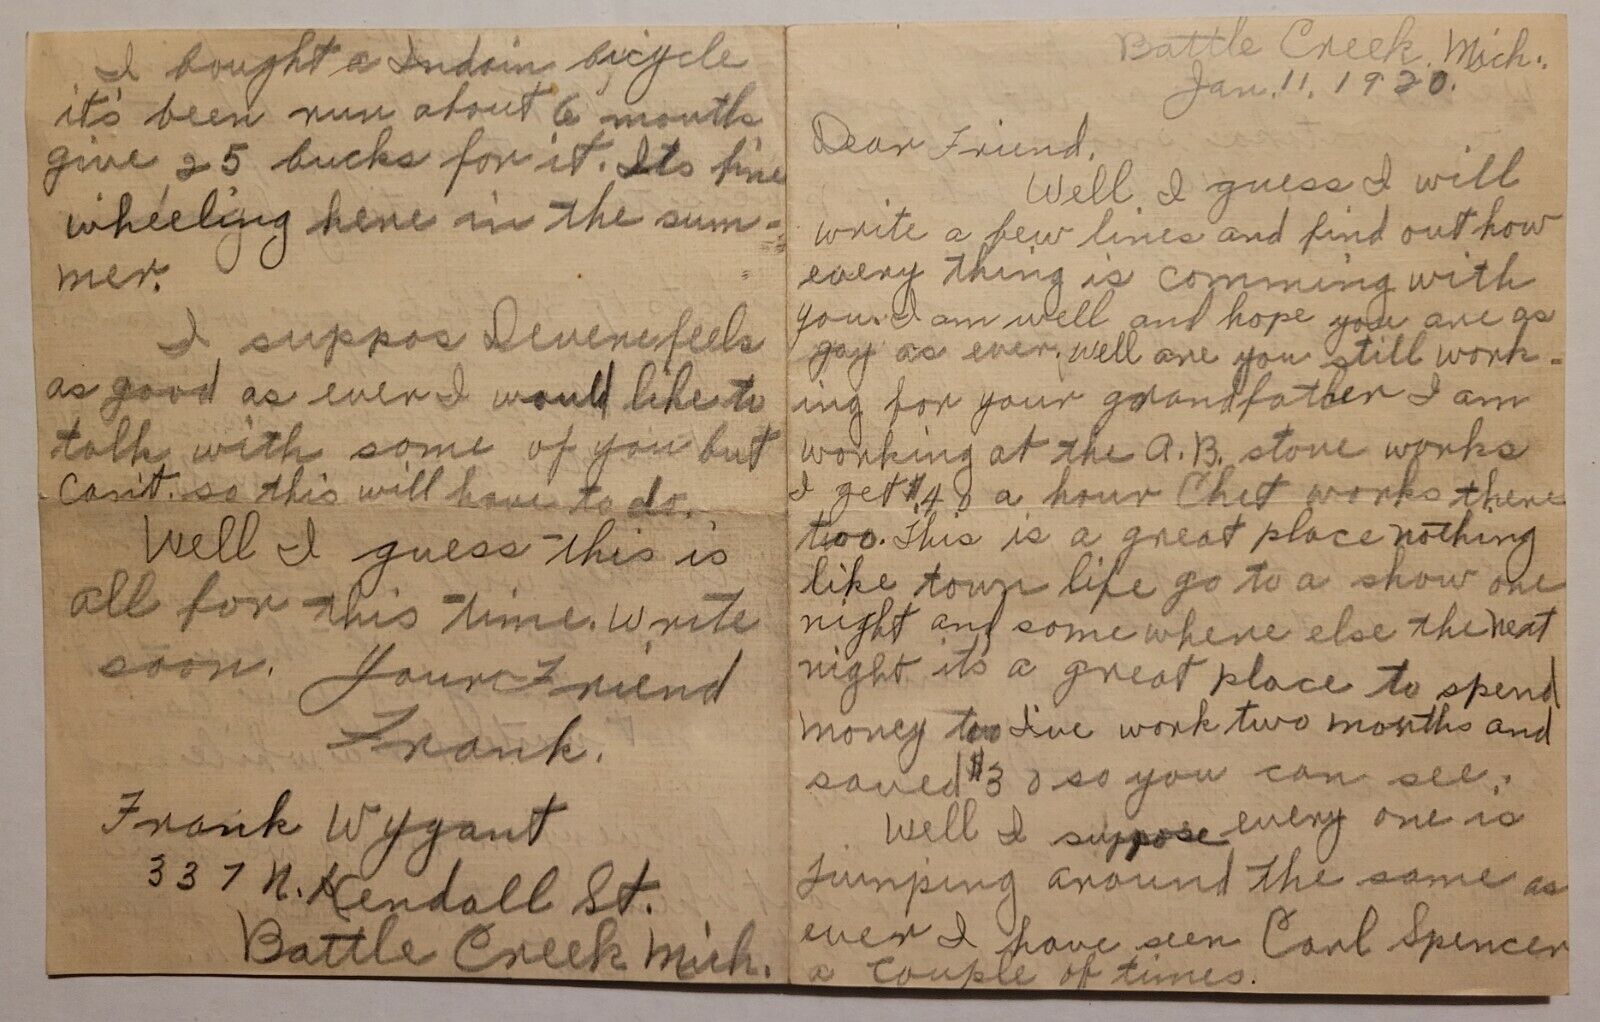 Battle Creek, Mich.
Jan. 11, 1920.
Dear Friend,
Well, I guess I will
write a few lines and find out how
every thing is comming with
you. I am well and hope you are as
gay as ever. Well are you still work-
ing for your grandfather I am
working at the A.B. stove works
I get $.40 a hour Chet works there
too. This is a great place nothing
like town life go to a show one
night and some where else the next
night it's a great place to spend
money too I've work two months and
saved $30 so you can see.
Well I suppose every one is
jumping around the same as
ever I have seen Carl Spencer
a couple of times.
I bought a Indain bicycle
it's been run about 6 months
give 25 bucks for it. Its fine
wheeling here in the sum-
mer.
I suppos Devere feels
as good as ever I would like to
talk with some of you but
can't. so this will have to do.
Well I guess this is
all for this time. Write
soon. Your Friend
Frank.
Frank Wygant
337 N. Kendall St.
Battle Creek Mich.